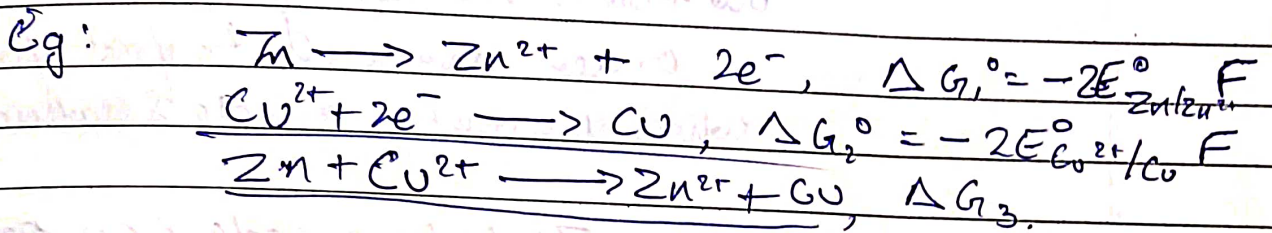 Eg: Zn ⟶ Zn²⁺ + 2e⁻, ΔG₁° = -2E°Zn/Zn²⁺ F
Cu²⁺ + 2e⁻ ⟶ Cu, ΔG₂° = -2E°Cu²⁺/Cu F
Zn + Cu²⁺ ⟶ Zn²⁺ + Cu, ΔG₃.